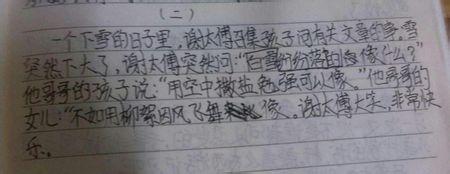 （二）
一个下雪的日子里，谢太傅召集孩子问有关文章的事。雪
突然下大了，谢太傅突然问：“白雪纷纷落的怎像什么？”
他哥哥的孩子说：“用空中撒盐勉强可以像。”他哥哥的
女儿：“不如用柳絮因风飞舞像。谢太傅大笑，非常快
乐。